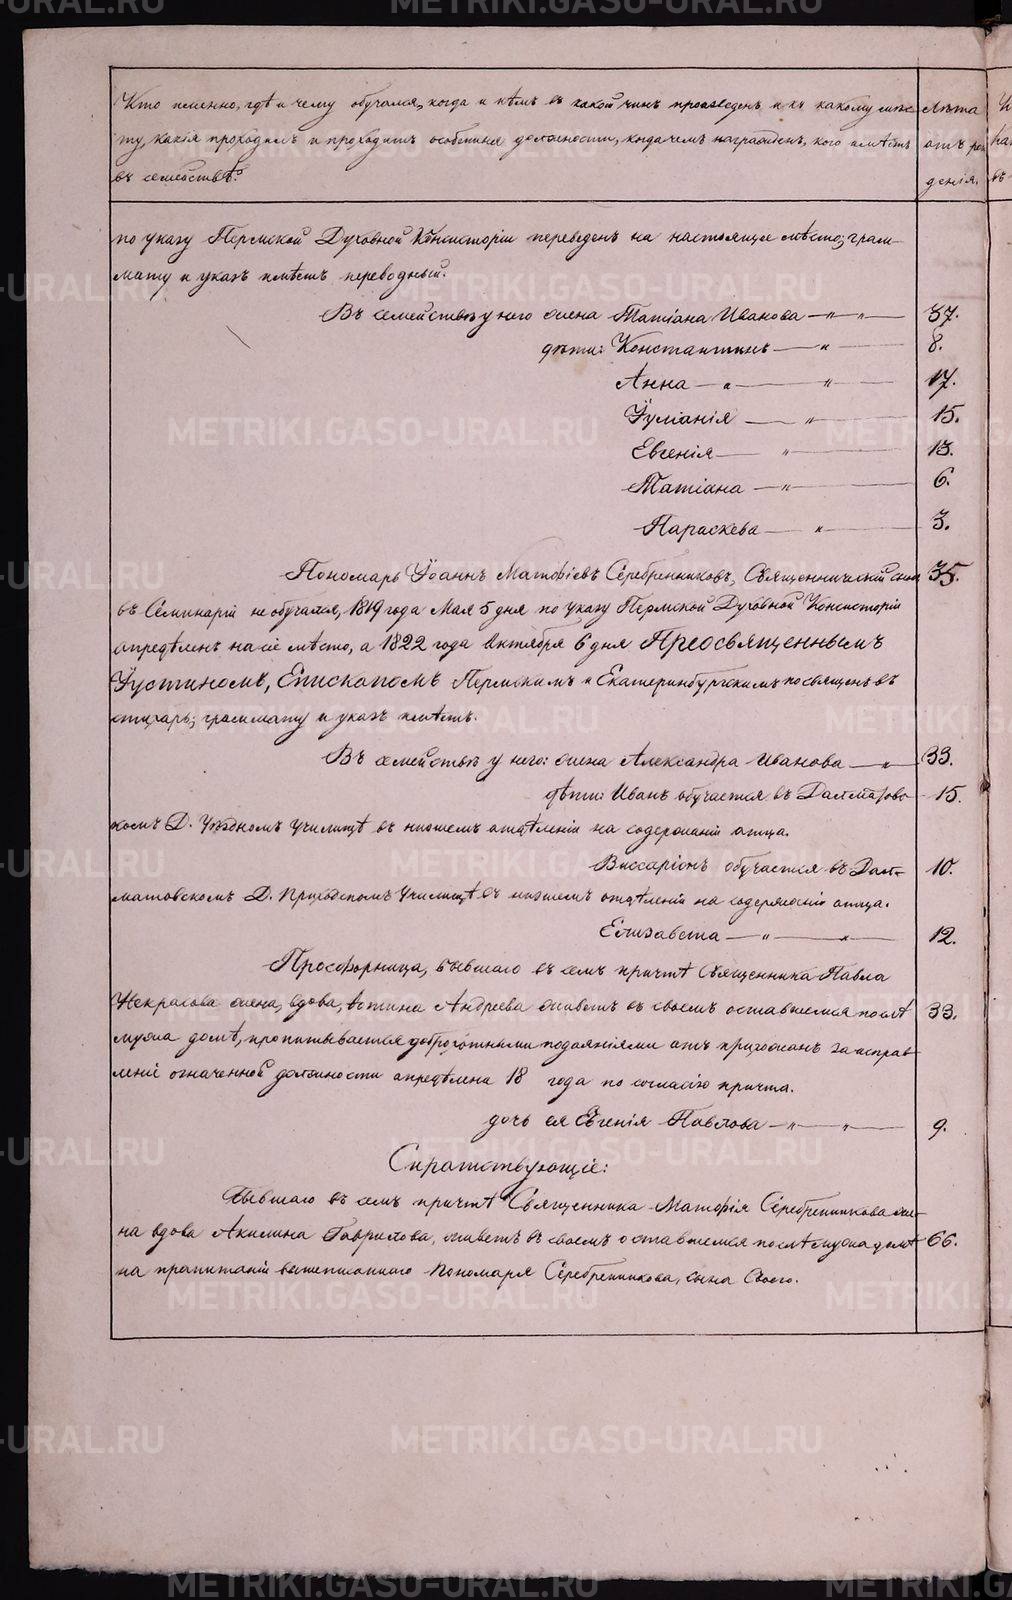 Кто именно, гдѣ и чему обучался, когда и кѣмъ въ какой чинъ произведенъ, и къ какому мѣс-
ту, какія проходилъ и проходитъ особенныя должности, когда чемъ награжденъ, кого имѣетъ
въ семействѣ?
Лѣта
отъ рож
денія.
по указу Пермской Духовной Консисторіи переведенъ на настоящее мѣсто; грам-
мату и указъ имѣетъ переводный.
Въ семействѣ у него жена Татіана Иванова — „ — „ — 37.
дѣти: Константинъ — „ — 8.
Анна — „ — „ — 17.
Іуліанія — „ — 15.
Евгенія — „ — 13.
Татіана — „ — 6.
Параскева — „ — 3.
Пономарь Іоаннъ Матѳіевъ Серебренниковъ, Священнической сынъ 35.
въ Семинаріи не обучался, 1819 года Мая 5 дня по указу Пермской Духовной Консисторіи
опредѣленъ на сіе мѣсто, а 1822 года Октября 6 дня Преосвященнымъ
Іустиномъ, Епископомъ Пермскимъ и Екатеринбургскимъ посвященъ въ
стихарь; граммату и указъ имѣетъ.
Въ семействѣ у него: жена Александра Иванова — „ — 33.
дѣти: Иванъ обучается въ Далматовс- 15.
комъ Д. Уѣздномъ Училищѣ въ низшемъ отдѣленіи на содержаніи отца.
Виссаріонъ обучается въ Дал- 10.
матовскомъ Д. Приходскомъ Училищѣ въ низшемъ отдѣленіи на содержаніи отца.
Елизавета — „ — „ — 12.
Просфорница, бывшаго въ семъ причтѣ Священника Павла
Некрасова жена, вдова, Андреева живетъ въ своемъ оставшемся послѣ 33.
мужа домѣ, пропитывается доброхотными подаяніями отъ прихожанъ за исправ-
леніе означенной должности опредѣлена 18 года по согласію причта.
дочь ея Евгенія Павлова — „ — „ — 9.
Сиротствующіе:
Бывшаго въ семъ причтѣ Священника Матѳія Серебренникова же-
на вдова Акилина Гаврилова, живетъ въ своемъ оставшемся послѣ мужа домѣ 66.
на пропитаніи вышеписаннаго Пономаря Серебренникова, сына Своего.
METRIKI.GASO-URAL.RU